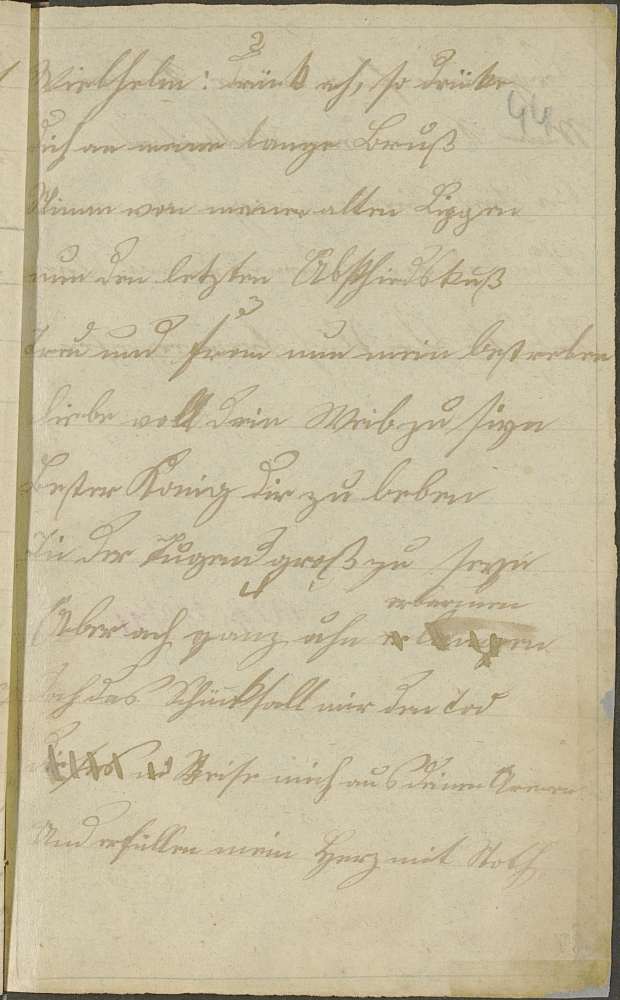 2
Wiebhelm: drück ach, so drücke
44
dich an meine lange Brust
Nimm von meiner alten Lippen
nun den letzten Abschiedskuß
3
Treu und from nun mein bestreben
Liebe voll dein Weib zu sein
Bester König dir zu leben
In der Tugend groß zu seyn
4
erbarmen
Aber ach ganz ohn
doch das Schücksall mir den Tod
Reise mich aus deinen Armen
Und erfüllen mein Herz mit Noth